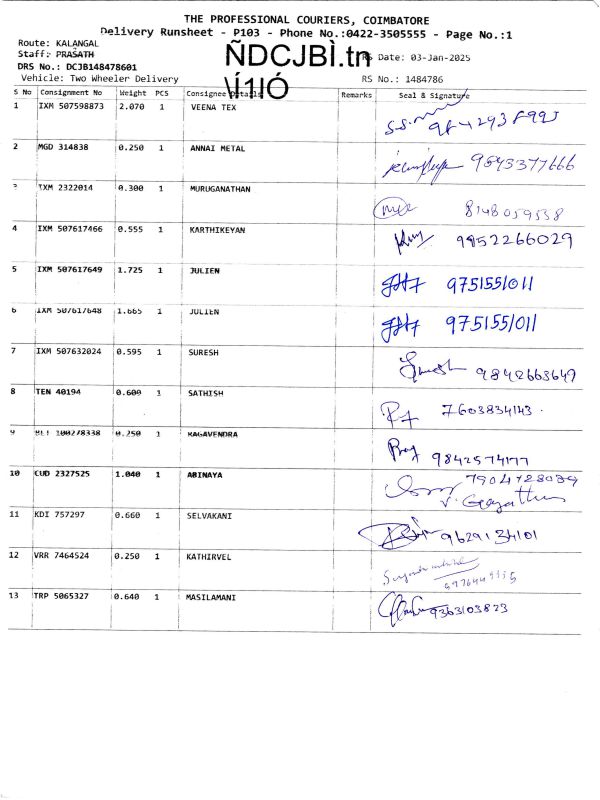 THE PROFESSIONAL COURIERS, COIMBATORE
Delivery Runsheet - P103 - Phone No.:0422-3505555 - Page No.:1
Route: KALANGAL
Staff: PRASATH
ÑDCJBÌ.tn
RS Date: 03-Jan-2025
DRS No.: DCJB148478601
Vehicle: Two Wheeler Delivery
RS No.: 1484786
S No Consignment No Weight PCS Consignee Details Remarks Seal & Signature
1 IXM 507598873 2.070 1 VEENA TEX
2 MGD 314838 0.250 1 ANNAI METAL 9843377666
3 IXM 2322014 0.300 1 MURUGANATHAN 8148059538
4 IXM 507617466 0.555 1 KARTHIKEYAN 9852266029
5 IXM 507617649 1.725 1 JULIEN 9751551011
6 IXM 507617648 1.665 1 JULIEN 9751551011
7 IXM 507632024 0.595 1 SURESH 9842663649
8 TEN 40194 0.600 1 SATHISH 7603834143
9 100278338 0.250 1 RAGAVENDRA 9842574177
10 CUD 2327525 1.040 1 ABINAYA
11 KDI 757297 0.660 1 SELVAKANI 9629134101
12 VRR 7464524 0.250 1 KATHIRVEL
13 TRP 5065327 0.640 1 MASILAMANI 9363103823